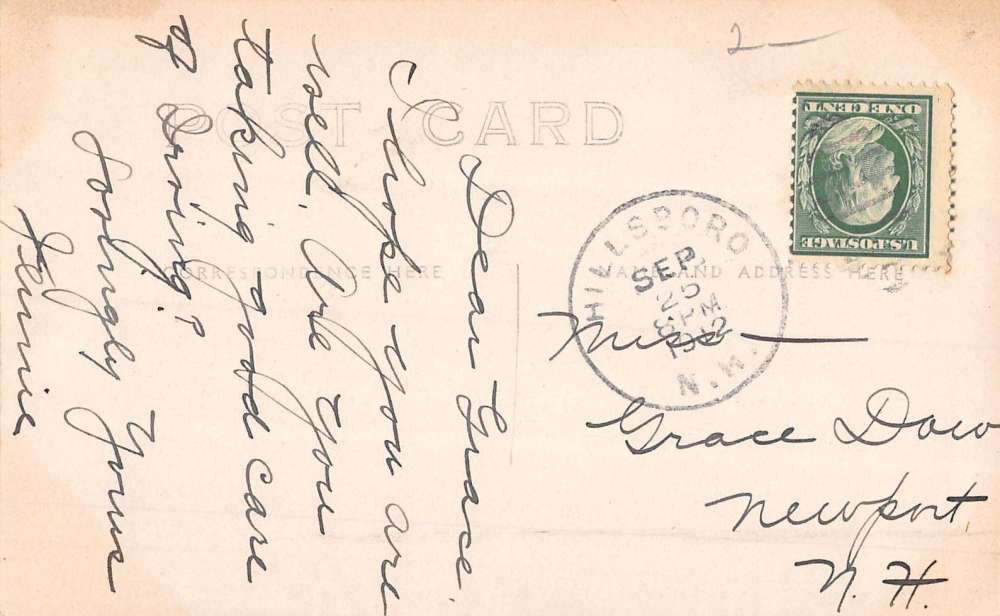 2 —
POST CARD
CORRESPONDENCE HERE
NAME AND ADDRESS HERE
U.S. POSTAGE
ONE CENT
HILLSBORO
SEP
25
8 PM
1912
N.H.
Dear Grace.
I hope you are
well. Are you
taking good care
of
Lovingly Yours
Jennie
Miss
Grace Dow
Newport
N. H.